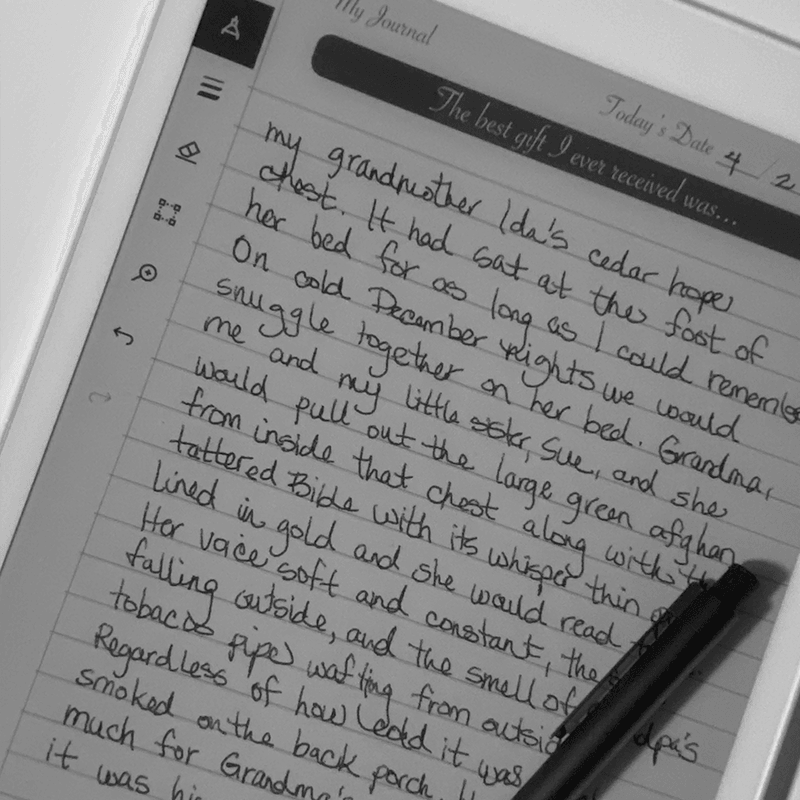 My Journal
Today's Date 4/2
The best gift I ever received was...
my grandmother Ida's cedar hope
chest. It had sat at the foot of
her bed for as long as I could remember
On cold December nights we would
snuggle together on her bed. Grandma,
me and my little sister, Sue, and she
would pull out the large green afghan
from inside that chest along with
tattered Bible with its whisper thin
lined in gold and she would read
Her voice soft and constant, the
falling outside, and the smell of
tobacco pipe wafting from outside
Regardless of how cold it was
smoked on the back porch.
much for Grandma's
it was his